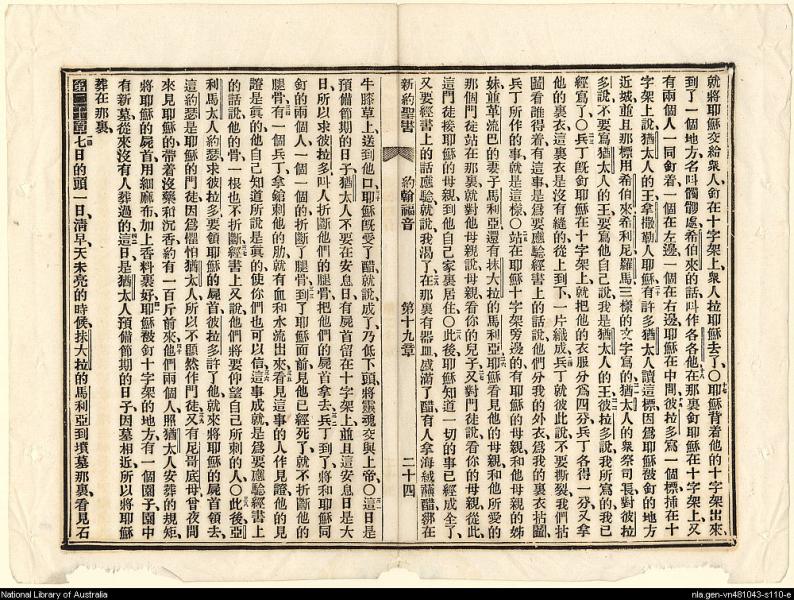 就將耶穌交給衆人釘在十字架上衆人拉耶穌去了〇耶穌背着他的十字架出來
到了一個地方名叫髑髏處希伯來的話叫作各各他在那裏釘耶穌在十字架上又
有兩個人一同釘着一個在左邊一個在右邊耶穌在中間彼拉多寫一個標揷在十
字架上說猶太人的王拿撒勒人耶穌有許多猶太人讀這標因爲耶穌被釘的地方
近城並且那標用希伯來希利尼羅馬三樣的文字寫的猶太人的衆祭司長對彼拉
多說不要寫猶太人的王要寫他自己說我是猶太人的王彼拉多說我所寫的我已
經寫了〇兵丁旣釘耶穌在十字架上就把他的衣服分爲四分兵丁各得一分又拿
他的裏衣這裏衣是沒有縫的從上到下一片織成兵丁就彼此說不要撕裂我們拈
鬮看誰得着有這事是爲要應驗經書上的話說他們分我的外衣爲我的裏衣拈鬮
兵丁所作的事就是這樣〇站在耶穌十字架旁邊的有耶穌的母親和他母親的姊
妹並革流巴的妻子馬利亞還有抹大拉的馬利亞耶穌看見他的母親和他所愛的
那個門徒站在那裏就對母親說母親看你的兒子又對門徒說看你的母親從此
這門徒接耶穌的母親到他自己家裏居住〇此後耶穌知道一切的事已經成全了
又要經書上的話應驗就說我渴了在那裏有器皿盛滿了醋有人拿海絨蘸醋綁在
新約聖書 約翰福音 第十九章 二十四
牛膝草上送到他口耶穌旣受了醋就說成了乃低下頭將靈魂交與上帝〇這日是
預備節期的日子猶太人不要在安息日有屍首留在十字架上並且這安息日是大
日所以求彼拉多叫人折斷他們的腿骨把他們的屍首拿去兵丁到了將和耶穌同
釘的兩個人一個一個的折斷了腿骨到了耶穌面前見他已經死了就不折斷他的
腿骨有一個兵丁拿鎗刺他的肋就有血和水流出來看見這事的人作見證他的見
證是眞的他自己知道所說是眞的使你們也可以信這事成就是爲要應驗經書上
的話說他的骨一根也不折斷經書上又說他們將要仰望自己所刺的人〇此後亞
利馬太人約瑟求彼拉多要領耶穌的屍首彼拉多許了他就來將耶穌的屍首領去
這約瑟是耶穌的門徒因爲懼怕猶太人所以不顯然作門徒又有尼哥底母曾夜間
來見耶穌的帶着沒藥和沉香約有一百斤前來他們兩個人照猶太人安葬的規矩
將耶穌的屍首用細麻布加上香料裏好耶穌被釘十字架的地方有一個園子園中
有新墓從來沒有人葬過的這日是猶太人預備節期的日子因墓相近所以將耶穌
葬在那裏
七日的頭一日清早天未亮的時候抹大拉的馬利亞到墳墓那裏看見石
National Library of Australia
nla.gen-vn481043-s110-e